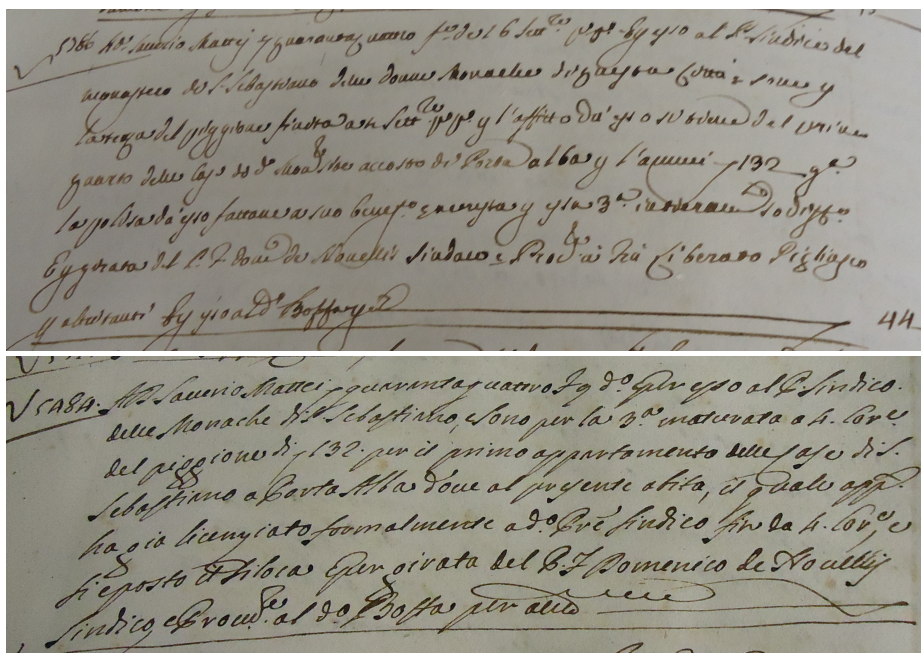 5786 A D. Saverio Mattei p quarantaquattro f.e de 16 Sett.re p.o p.o E p esso al P. Sindico del
Monastero de S. Sebastiano delle donne Monache di questa Città e sono p
la terza del piggione finita a 4 Sett.re p.o p.o p l'affitto da esso si tiene del primo
quarto delle Case di d.o Mon.ro accosto di Porta Alba p l'annui 132 g.a
la polisa da esso fattane a suo benef.o p esta 3.a
E p girata del P. F. Dom.co de Novellis Sindaco e Proc.re a Frà Liberato Pigliasco
p altritanti E p esso al D.o Boffa p
44
5484. A D. Saverio Mattei p quarantaquattro F. 9 d.o E per esso al P. Sindico
delle Monache di S. Sebastiano, e sono per la 3.a maturata a 4. Cor.e
del piggione di 132. per il primo appartamento delle Case di S.
Sebastiano a Porta Alba dove al presente abita, il quale app.to
ha già licenziato formalmente a d.o P.re Sindico fin da 4. Cor.e, e
si è posto il si loca E per girata del P. F. Domenico de Novellis
Sindico e Procu.re al d.o Boffa per alt.i